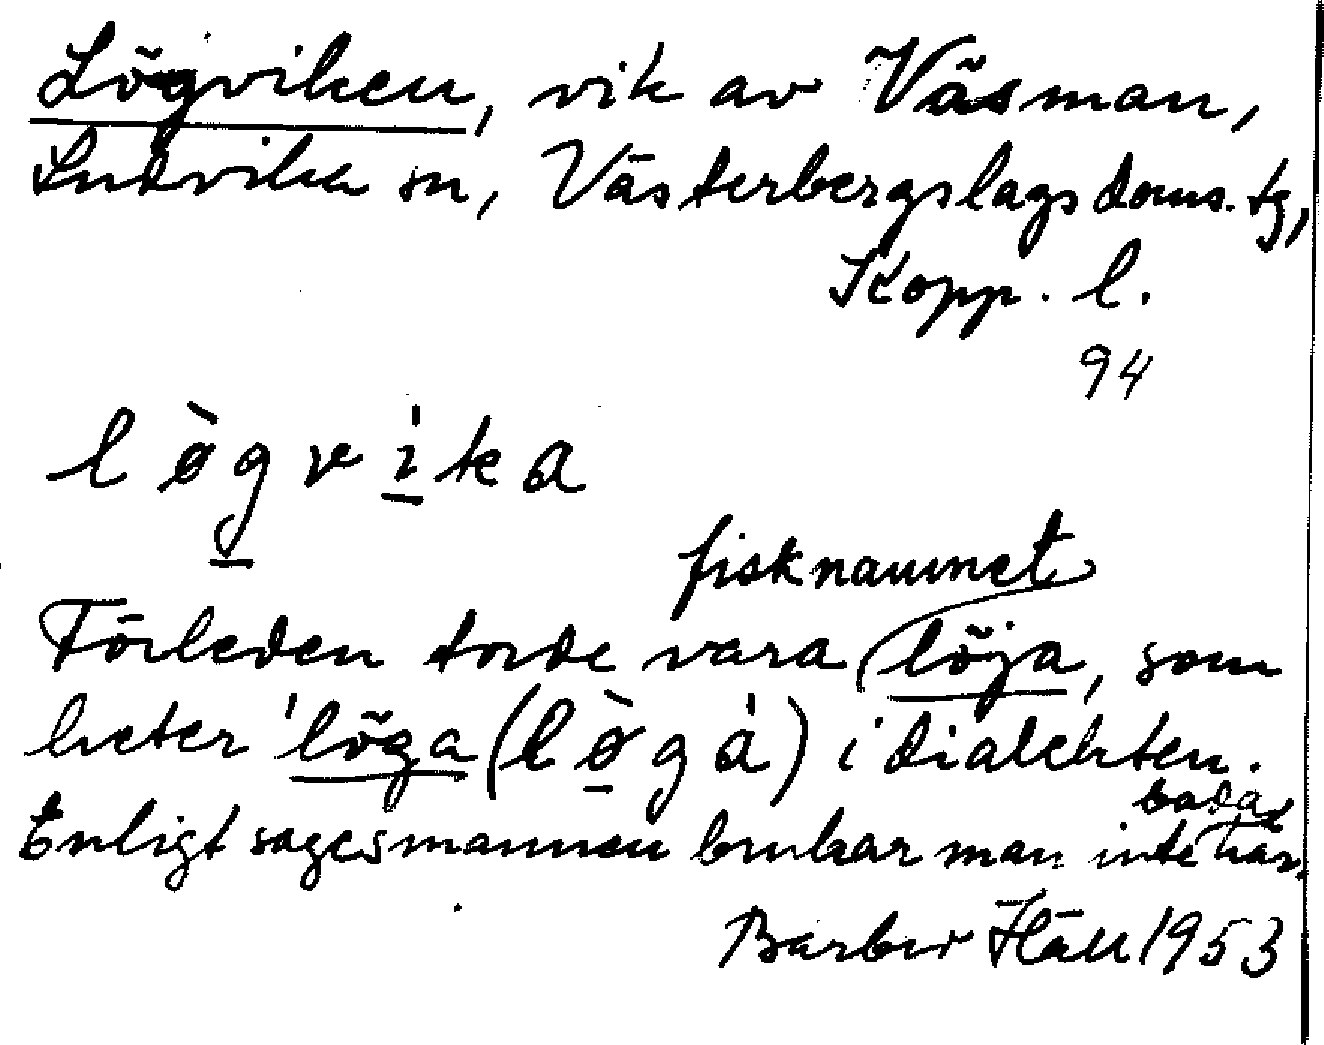 Lögviken, vik av Väsman,
Ludvika sn, Västerbergslags doms. tg,
Kopp. l.
94
lø̀gvı̍ka
fisknamnet
Förleden torde vara löja, som
heter 'löga (lø̀ga̍) i dialekten.
bada
Enligt sagesmannen brukar man inte här.
Barbro Häll 1953